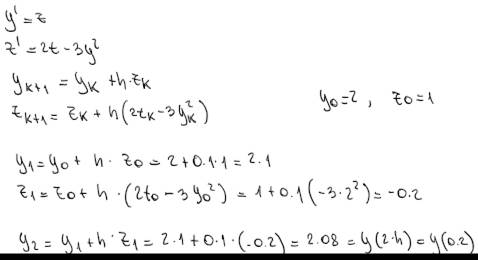 y' = z
z' = 2t - 3y²
y_{k+1} = y_k + h·z_k
z_{k+1} = z_k + h(2t_k - 3y_k²)
y_0 = 2 , z_0 = 1
y_1 = y_0 + h · z_0 = 2 + 0.1 · 1 = 2.1
z_1 = z_0 + h · (2t_0 - 3y_0²) = 1 + 0.1(-3·2²) = -0.2
y_2 = y_1 + h · z_1 = 2.1 + 0.1 · (-0.2) = 2.08 = y(2·h) = y(0.2)